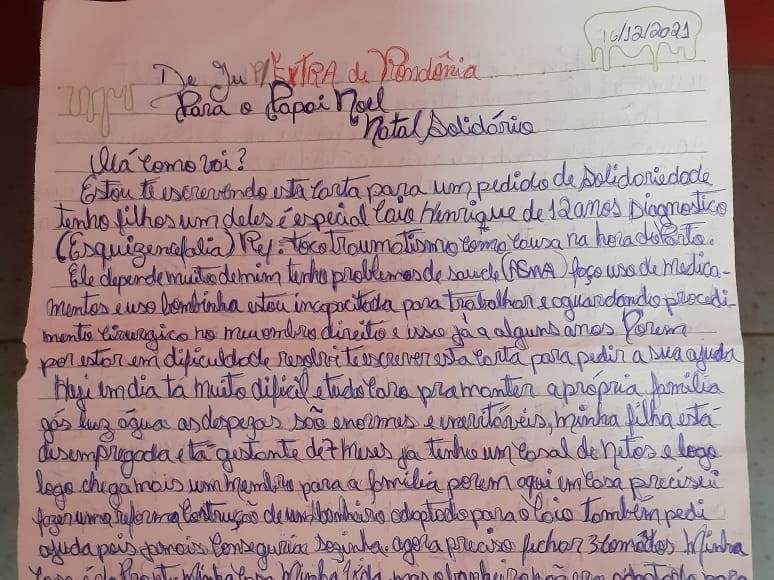 16/12/2021
De Ju P/EXTRA de Rondônia
Para o Papai Noel
Natal Solidário
Olá como vai?
Estou ti escrevendo esta carta para um pedido de solidariedade
tenho filhos um deles é especial Caio Henrique de 12 anos Diagnostico
(Esquizencefalia) Ref: toco Traumatismo como causa na hora do Parto.
Ele depende muito de mim tenho problemas de saude (ASMA) faço uso de Medica-
mentos e uso bombinha estou incapacitada para trabalhar e aguardando procedi-
mento cirurgico no meu ombro direito e isso já a alguns anos Porem
por estar em dificuldade resolvi ti escrever esta carta para pedir a sua ajuda
Hoji em dia ta muito dificil e tudo caro pra manter a própria familia
gás luz água as despezas são enormes e inevitáveis, minha filha está
desempregada e ta gestante de 7 meses ja tenho um casal de netos e logo
logo chega mais um membro para a familia porem aqui em casa precisei
fazer uma reforma construção de um banheiro adaptado para o Caio também pedi
ajuda pois jamais conseguiria sozinha. agora preciso fechar 3 comodos Minha